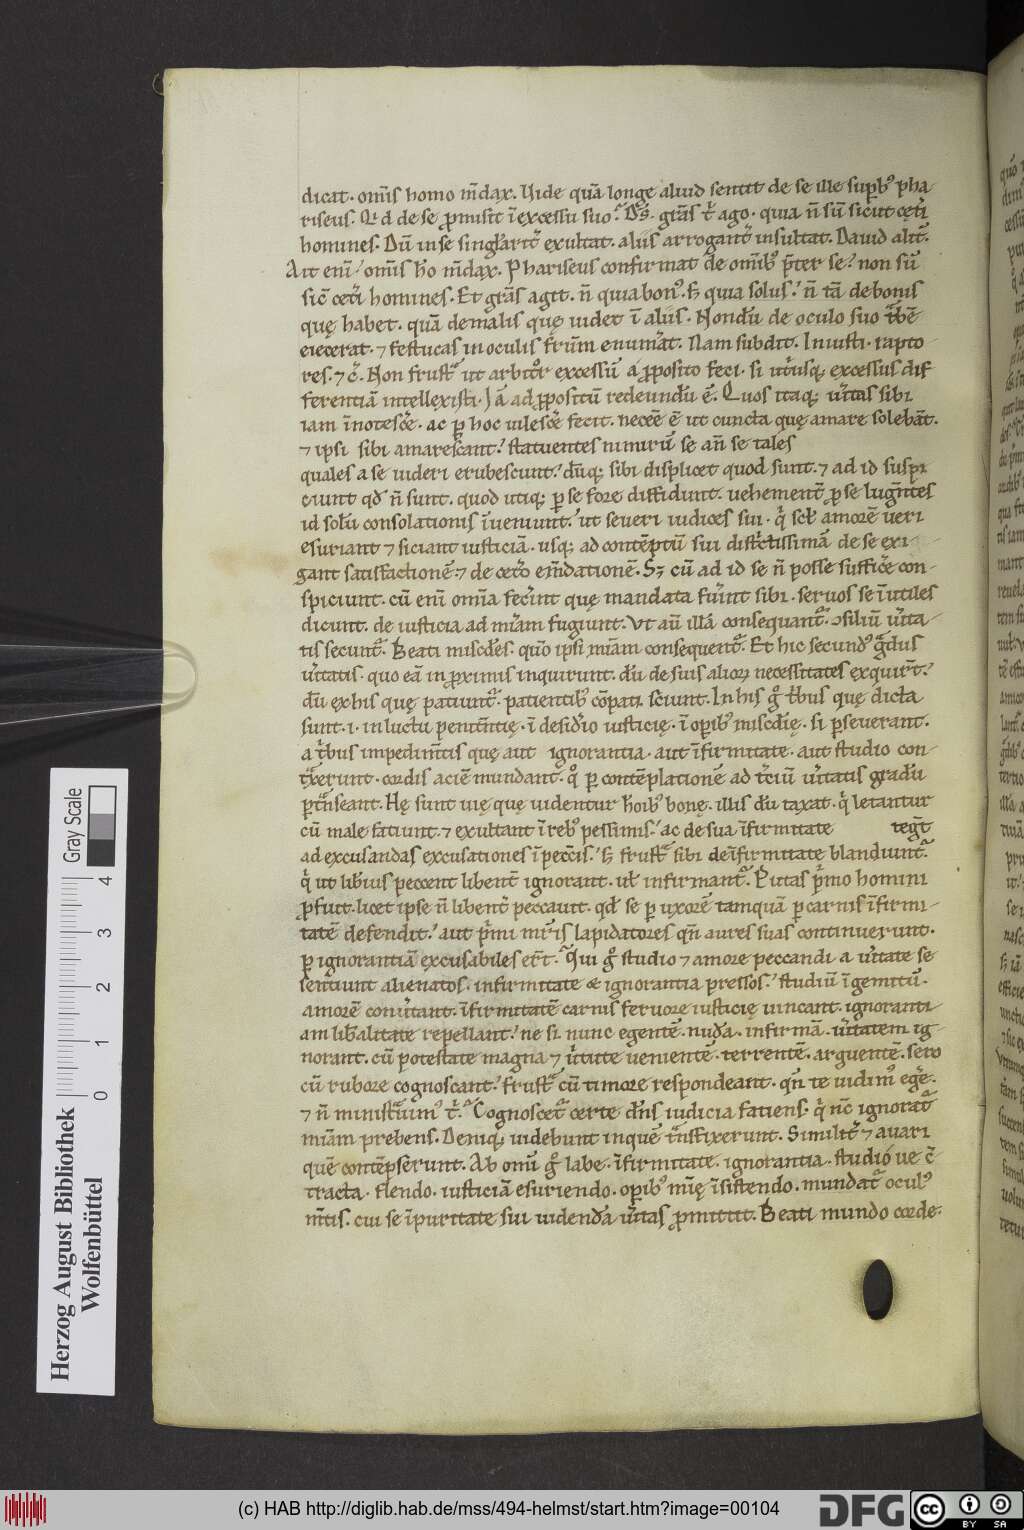 dicat. om̄is homo m̄dax. Uide quā longe aliud sentit de se ille sup̄bꝰ pha-
riseus. Qͥd de se ꝓmisit ī excessu suo? D̄s. gr̄as tͥ ago. quia n̄ sū sicut cet̄i
homines. Dū in se singl̓arit̄ exultat. aliis arrogant̄ insultat. Dauid alit̄.
Ait eni᷒. om̄is h̓o m̄dax. Phariseus confirmat de om̄ibꝰ p̄ter se. non sū
sic̄ cet̄i homines. Et gr̄as agit. n̄ quia bonꝰ. s; quia solus. n̄ tā de bonis
quę habet. quā de malis quę uidet ī aliis. Nondū de oculo suo trabē
eiecerat. ⁊ festucas in oculis fr̄um enum̄at. Nam subdit. Iniusti. rapto-
res. ⁊ c̄. Non frustͣ ut arbitͦr excessū a ꝓposito feci. si utͥusq; excessus dif-
ferentiā intellexisti. Iā ad ꝓpositū redeundū ē. Quos itaq; ūitas sibi
iam īnotesc̄e. ac ꝑ hoc uilesc̄e fecit. necēe ē ut cuncta quę amare solebāt.
⁊ ipsi sibi amarescant. statuentes nimirū se an̄ se tales
quales a se uideri erubescunt. dūq; sibi displicet quod sunt. ⁊ ad id suspi-
ciunt qd̓ n̄ sunt. quod utiq; ꝑ se fore diffidunt. uehement̄ ꝓ se luḡntes
id solū consolationis īueniunt. ut seueri iudices sui. qͥ scł amorē ueri
esuriant ⁊ siciant iusticiā. usq; ad contēptū sui distͥctissimā de se exi-
gant satisfactionē. ⁊ de ceto᷒ em̄dationē. S; cū ad id se n̄ posse suffic̄e con-
spiciunt. cū eni᷒ om̄ia fec̄int quę mandata fūint sibi. seruos se īutiles
dicunt. de iusticia ad mi᷒am fugiunt. Ut au᷒ illā consequantͬ. ꝯsiliū ūita-
tis secuntͬ. Beati misc̄des. qu̅o ip̄i mi᷒am consequentͬ. Et hic secundꝰ gͣdus
ūitatis. quo eā in ꝓximis inquirunt. dū de suis alioꝝ necessitates exquir̄t.
dū ex his quę patiuntͬ. patientibꝰ cōpati sciunt. In his gͦ tͥbus quę dicta
sunt. i. in luctu penit̄tię. ī desid̄io iusticię. ī oꝑibꝰ misc̄dię. si ꝑseuerant.
a tͥbus impedim̄tis quę aut ignorantia. aut īfirmitate. aut studio con-
tͣxerunt. cordis aciē mundant. qͦ ꝑ contēplationē ad t̄ciū ūitatis gradū
ꝑtͣnseant. Hę sunt uię quę uidentur h̓oibꝰ bonę. illis dū taxat. qͥ letantur
cū male fatiunt. ⁊ exultant ī rebꝰ pessimis. ac de sua īfirmitate tegūt
ad excusandas excusationes ī pecc̄is. s; frustͣ sibi de īfirmitate blandiuntͬ
qͥ ut lib̄ius peccent libent̄ ignorant. ul̓ infirmantͬ. Putas pͥmo homini
ꝓfuit. licet ipse n̄ libent̄ peccauit. qd̓ se ꝑ uxorē tamquā ꝑ carnis īfirmi-
tatē defendit. aut pͥmi mr̄is lapidatores qn̄ aures suas continuerunt.
ꝑ ignorantiā excusabiles er̄t. Qui gͦ studio ⁊ amore peccandi a ūitate se
sentiunt alienatos. infirmitate & ignorantia pressos. studiū ī gemitū.
amorē con ūtant. īfirmitatē carnis feruore iusticię uincant. ignoranti-
am lib̓alitate repellant. ne si. nunc egentē. nudā. infirmā. ūitatem ig-
norant. cū potestate magna ⁊ ūtute uenientē. terrentē. arguentē. sero
cū rubore cognoscant. frustͣ cū timore respondeant. qn̄ te uidimꝰ eg̓e.
⁊ n̄ ministͣuimꝰ tͥ. Cognoscetͬ certe dn̄s iudicia fatiens. qͥ nc̄ ignoratͬ
mi᷒am prebens. Deniq; uidebunt in quē tͣnsfixerunt. Similit̄ ⁊ auari
quē contēpserunt. Ab om̄i gͦ labe. īfirmitate. ignorantia. studio ue c̄-
tracta. flendo. iusticiā esuriendo. oꝑibꝰ mi᷒ę īsistendo. mundatͬ oculꝰ
m̄tis. cui se ī puritate sui uidendā ūitas ꝓmittit. Beati mundo corde.
Herzog August Bibliothek
Wolfenbüttel
0 1 2 3 4
Gray Scale
(c) HAB http://diglib.hab.de/mss/494-helmst/start.htm?image=00104
DFG
cc BY SA